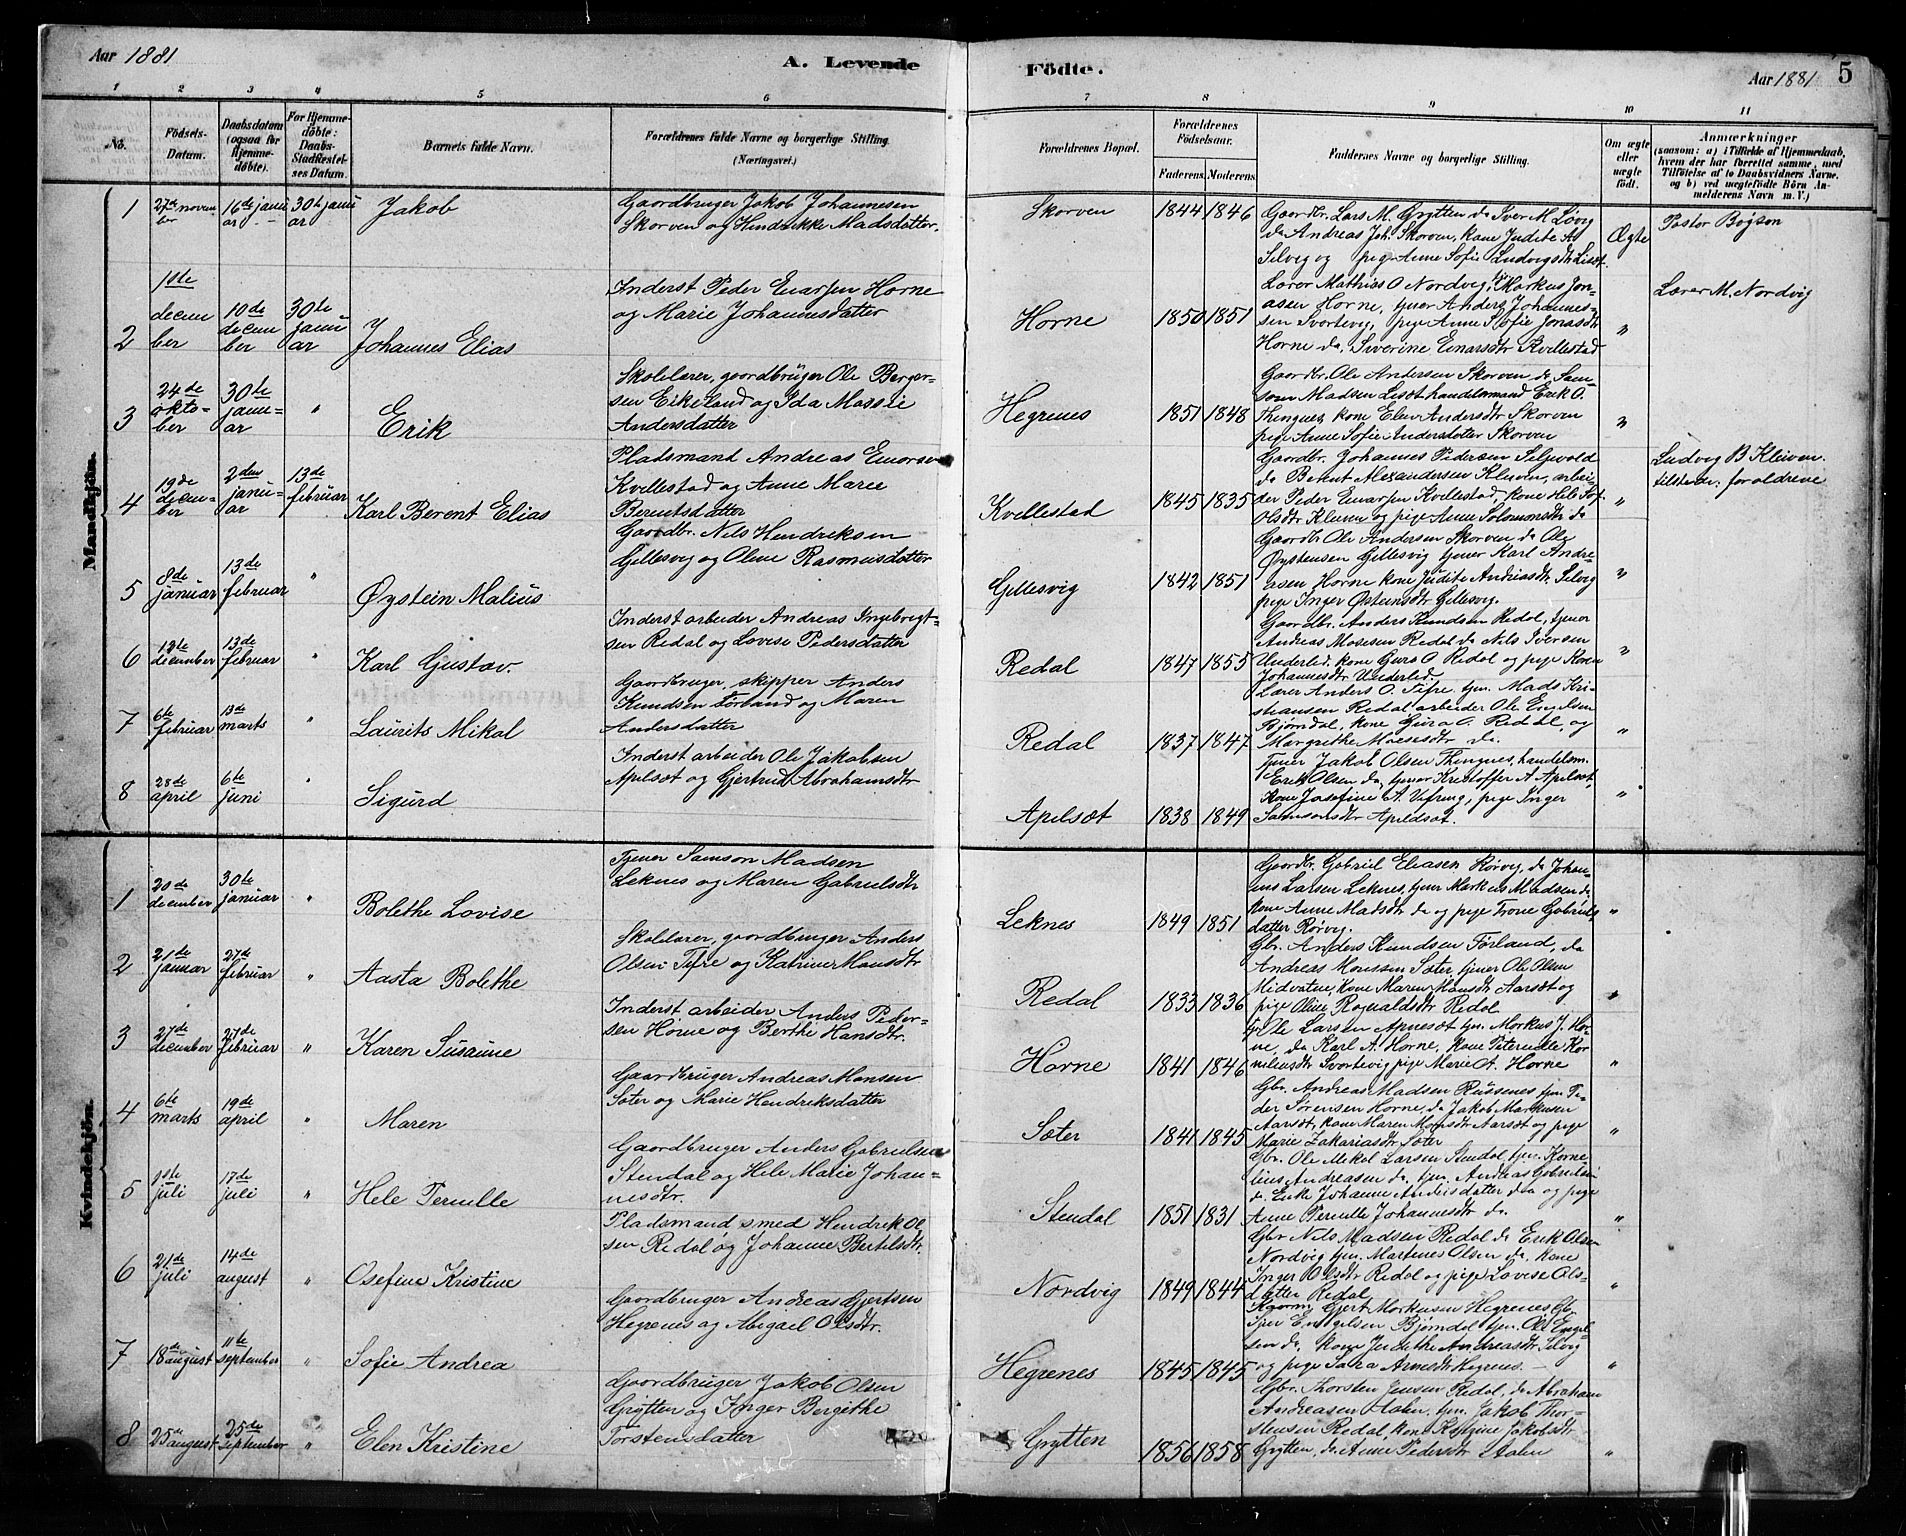 Aar 1881
A. Levende
Födte.
Aar 1881
5
1 2 3 4 5 6 7 8 9 10 11
No.
Födsels-
Datum.
Daabsdatum
(ogsaa for
Hjemme-
döbte).
For Hjemme-
döbte:
Daabs-
Stadfæstel-
ses Datum.
Barnets fulde Navn.
Forældrenes fulde Navne og borgerlige Stilling.
(Næringsvei.)
Forældrenes Bopæl.
Forældrenes
Födselsaar.
Faderens. Moderens.
Faddernes Navne og borgerlige Stilling.
Om ægte
eller
uægte
födt.
Anmærkninger
(saasom: a) i Tilfælde af Hjemmedaab,
hvem der har forrettet samme, med
Tilföielse af to Daabsvidners Navne,
og b) ved uægtefödte Börn An-
melderens Navn m. V.)
Mandkjön.
1 27de novem
ber
16de janu
ar
30te janu
ar
Jakob
Gaardbruger Jakob Johannesen
Skorven og Hendrikke Madsdatter.
Skorven 1844 1846
Gaardbr. Lars M. Grytten do Iver M. Løvig
do Andreas Joh. Skorven, kone Judite A.
Selvig og pige Anne Sofie Ludvigsdtr Lisæt.
Ægte
Pastor Bøgson
2 1ste
decem
ber
10de
decem
ber
30te
janu
ar
Johannes Elias
Inderst Peder Enarsen Horne
og Marie Johannesdatter
Horne 1850 1851
Lærer Mathias O Nordvig, tj. Markus Jon-
asen Horne, tjener Anders Johannes-
sen Svortevig, pige Anne Sofie Jonasdtr
Horne do, Severine Enarsdtr Kvellestad
"
Lærer M. Nordvig
3 24de
okto-
ber
30te
janu-
ar
"
Erik
Skolelærer, gaardbruger Ole Berger-
sen Eikeland og Ida Massie
Andersdatter
Hegrenes 1851 1848
Gaardbr. Ole Andersen Skorven do Sam-
son Madsen Lisæt handelsmand Erik O.
Thingnes, kone Elen Andersdtr Skorven
pige Anne Sofie Andersdatter Skorven
"
4 19de
decem-
ber
2den
janu-
ar
13de
februar
Karl Berent Elias
Pladsmand Andreas Enarsen
Kvellestad og Anne Marie
Berentsdatter
Kvellestad 1845 1835
Gaardbr. Johannes Pedersen Seljevold
do Bernt Alexandersen Kleiven, arbei-
der Peder Enarsen Kvellestad, kone Hele Sof.
Olsdtr Kleiven og pige Anne Solomonsdtr do
"
Ludvig B Kleiven.
tilsteden: foræld­rene
5 8de
januar
13de
februar
"
Øystein Malius
Gaardbr. Nils Hendriksen
Gillesvig og Oline Rasmusdatter
Gillesvig 1842 1851
Gaardbr Ole Andersen Skorven do Ole
Øystensen Gillesvig tjener Karl Andre-
assen Horne kone Judite Andreasdtr Selvig
pige Inger Østeinsdtr Gillesvig.
"
6 12te
december
13de
februar
"
Karl Gustav.
Inderst arbeider Andreas Ingebrigt-
sen Redal og Lovise Pedersdatter
Redal 1847 1855
Gaardbr. Anders Knudsen Redal, tjener
Andreas Mosesen Redal do Nils Iversen
Underlid, kone Guro O. Redal og pige Karen
Johannesdtr Underlid.
"
7 6te
februar
13de
marts
"
Laurits Mikal
Gaardbruger, skipper Anders
Knudsen Førland og Maren
Andersdatter
Redal 1837 1847
Lærer Anders O. Tifre, tjen. Mads Kri-
stiansen Redal, arbeider Ole Engelsen
Bjørndal, kone Guro O. Redal, og
Margrethe Mosesdtr do.
"
8 28de
april
6te
juni
"
Sigurd
Inderst arbeider Ole Jakobsen
Apelsæt og Gjertrud Abrahamsdtr
Apelsæt 1838 1849
Tjener Jakob Olsen Thingnes, handelsm.
Erik Olsen do, tjener Kristoffer A. Apelsæt,
kone Josefine A. Vefring, pige Inger
Samsonsdtr Apeldsæt.
"
Kvindekjön.
1 20de
december
30te
januar
"
Bolethe Lovise
Tjener Samson Madsen
Leknes og Maren Gabrielsdtr
Leknes 1849 1851
Gaardbr. Gabriel Eliasen Rørvig, do Johan-
nes Larsen Leknes, tjener Markus Madsen do
kone Anne Madsdtr do og pige Trone Gabriels-
datter Rørvig.
"
2 21de
januar
27de
februar
"
Aasta Bolethe
Skolelærer, gaardbruger Anders
Olsen Tifre og Katrine Hansdtr
Redal 1833 1836
Gbr. Anders Knudsen Førland, do
Andreas Monssen Sæter, tjener Ole Olsen
Midvatne, kone Maren Monsdtr Aarsæt og
pige Oline Rognaldsdtr Redal
"
3 27de
december
27de
februar
"
Karen Susanne
Inderst arbeider Anders Peder-
sen Horne og Berthe Hansdtr.
Horne 1841 1846
tj. Ole Larsen Apnesæt tjen. Markus J. Hor-
ne, do Karl A. Horne, kone Peternille Kor-
neliusdtr Svortevig pige Marie A. Horne
"
4 6te
marts
19de
april
"
Maren
Gaardbruger Andreas Monsen
Sæter og Marie Hendriksdatter
Sæter 1841 1845
Gbr. Andreas Madsen Russenes tjen. Pe-
der Sørensen Horne, do Jakob Markusen
Aarsæt, kone Maren Monsdtr Aarsæt og pige
Marie Zakariasdtr Sæter
"
5 1ste
juli
17de
juli
"
Hele Pernille
Gaardbruger Anders Gabrielsen
Stendal og Hele Marie Johan-
nesdtr.
Stendal 1851 1831
Gbr. Ole Mikal Larsen Stendal, tjen. Korne-
lius Andreasen do, tjen. Andreas Gabrielsen
do. Enke Johanne Andersdatter do og pige
Anne Pernille Johannesdtr do.
"
6 21de
juli
14de
august
"
Osefine Kristine
Pladsmand smed Hendrik Ol-
sen Redal og Johanne Bertelsdtr.
Nordvig 1849 1844
Gbr Nils Madsen Redal do Erik Olsen
Nordvig tjen. Martenes Olsen do, kone
Inger Olsdtr Redal og pige Lovise Ols-
datter Redal
"
7 18de august
11te
september
"
Sofie Andrea
Gaardbruger Andreas Gjertsen
Hegrenes og Abigael Olsdtr.
Hegrenes 1845 1845
Kaarm. Gjert Markusen Hegrenes Gb.
Iver Engelsen Bjørndal tjen. Ole Engel-
sen do, kone Judithe Andreasdtr Selvig
og pige Sara Arnesdtr Hegrenes. –
"
8 25de august
25de
september
"
Elen Kristine
Gaardbruger Jakob Olsen
Grytten og Inger Bergithe
Torstensdatter
Grytten 1856 1858
Gbr. Thorsten Jensen Redal, do Abraham
Andreasen Aalen, tjen. Jakob Thor-
stensen Redal, kone Kristine Jakobsdtr
Grytten, do Anne Pedersdtr Aalen
"